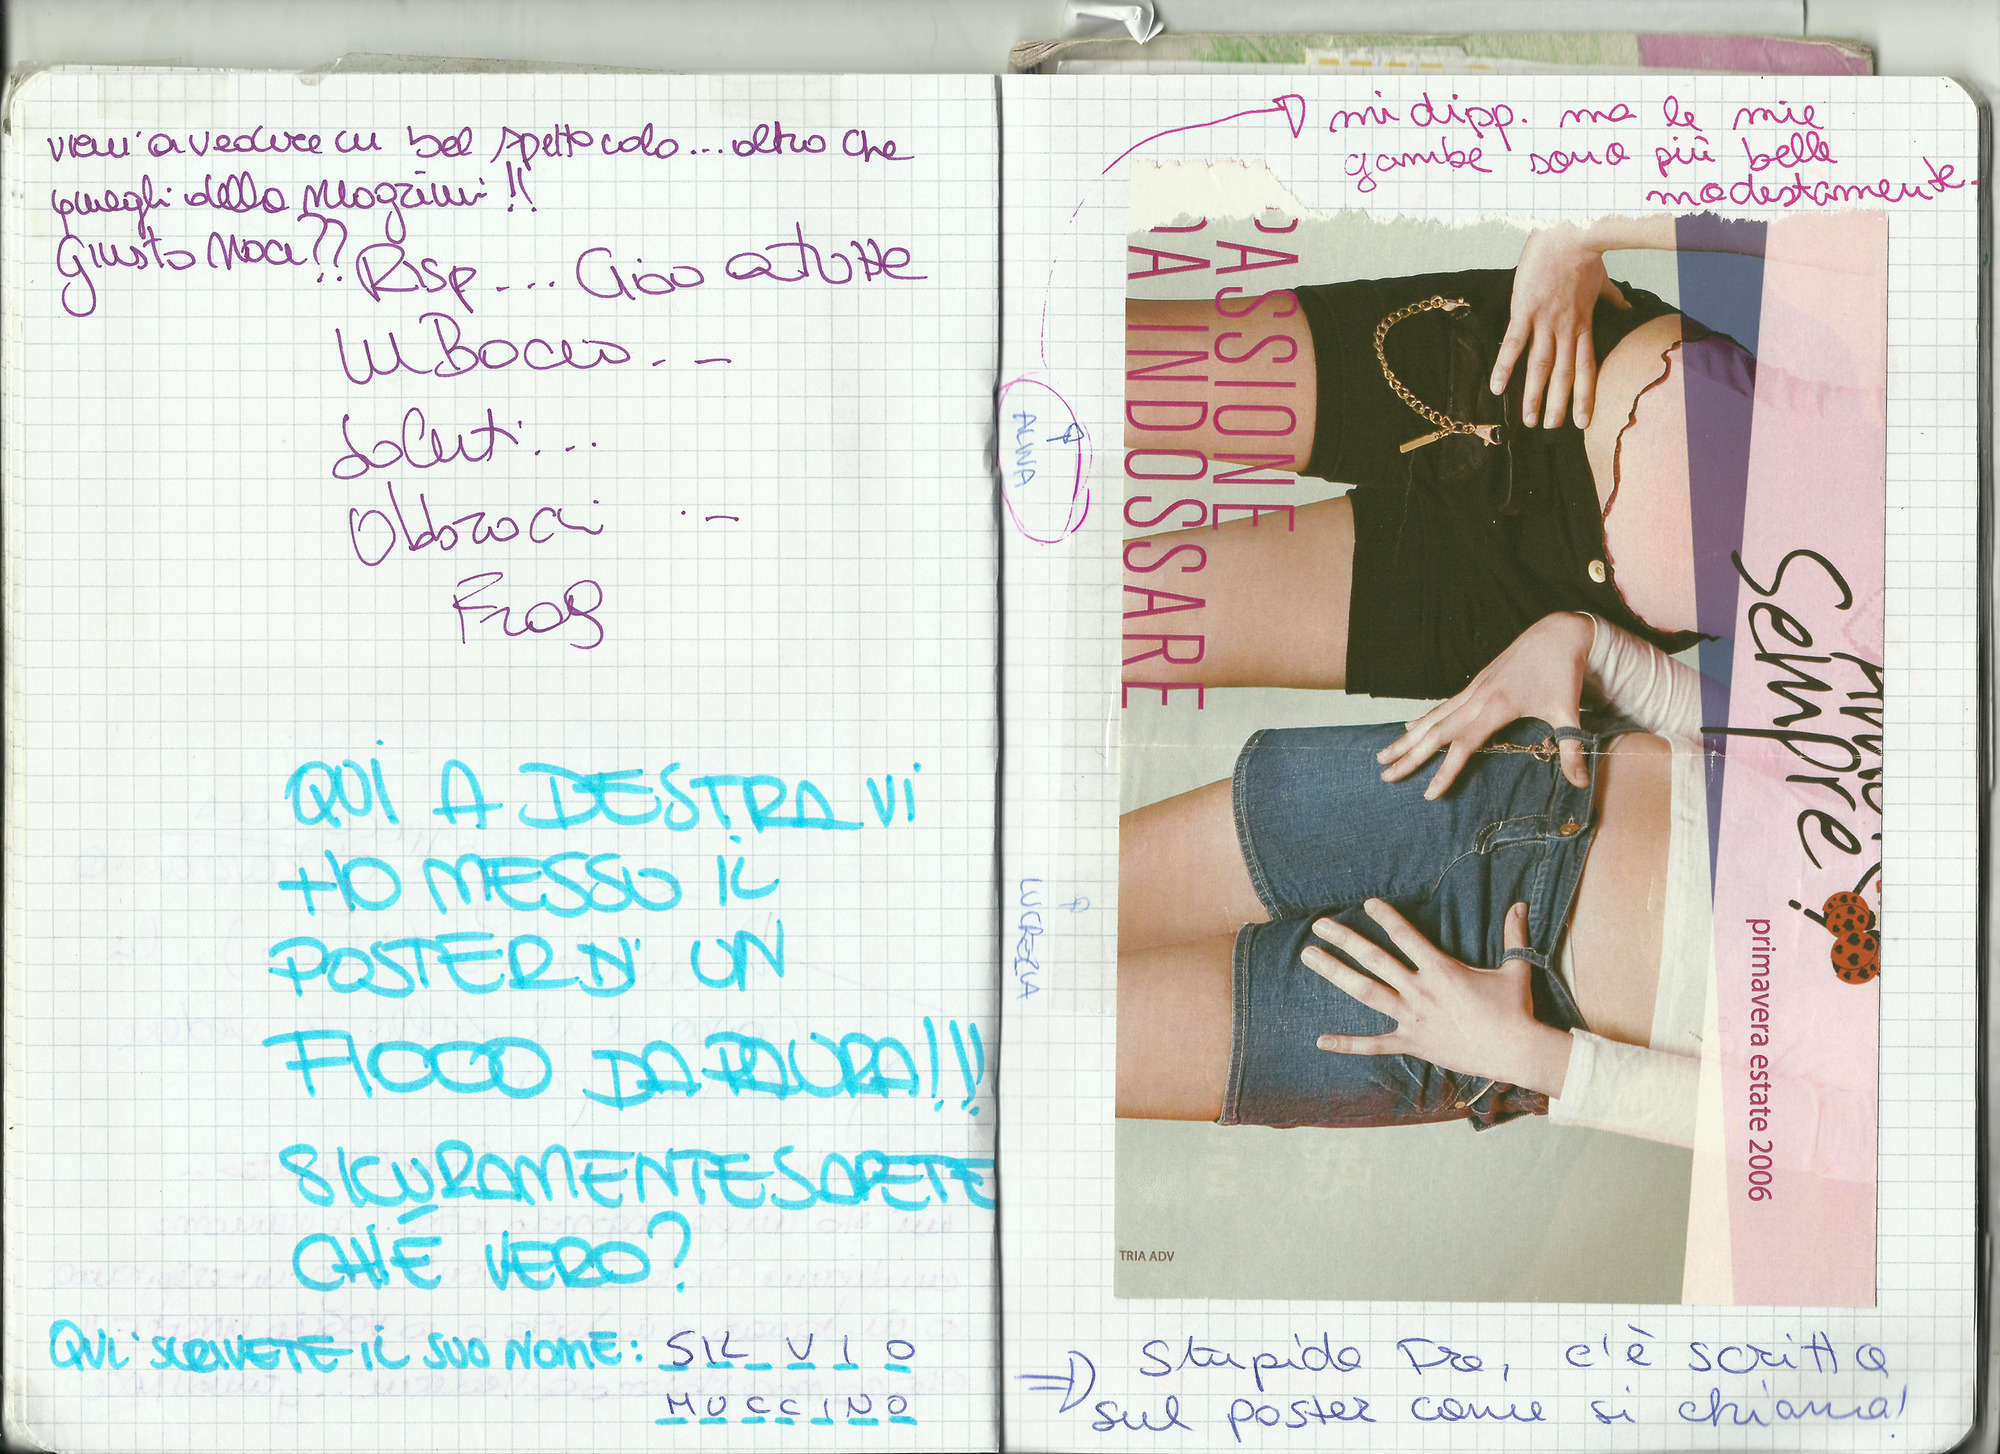 vieni a vedere un bel spettacolo... altro che
quegli della Mogzimi!!
Giusto Moci??
Risp... Ciao a tutte
un Bacio...
Saluti...
Abbracci ..
Frog
QUI A DESTRA VI
HO MESSO IL
POSTER DI UN
FIOCO DA PAURA!!!
SICURAMENTE SAPETE
CHI È VERO?
QUI SCRIVETE IL SUO NOME: SILVIO
MUCCINO
mi dispp. ma le mie
gambe sono più belle
modestamente.
ALWA
LUCREZIA
PASSIONE
DA INDOSSARE
Sempre!
primavera estate 2006
TRIA ADV
Stupida Fra, c'è scritto
sul poster come si chiama!